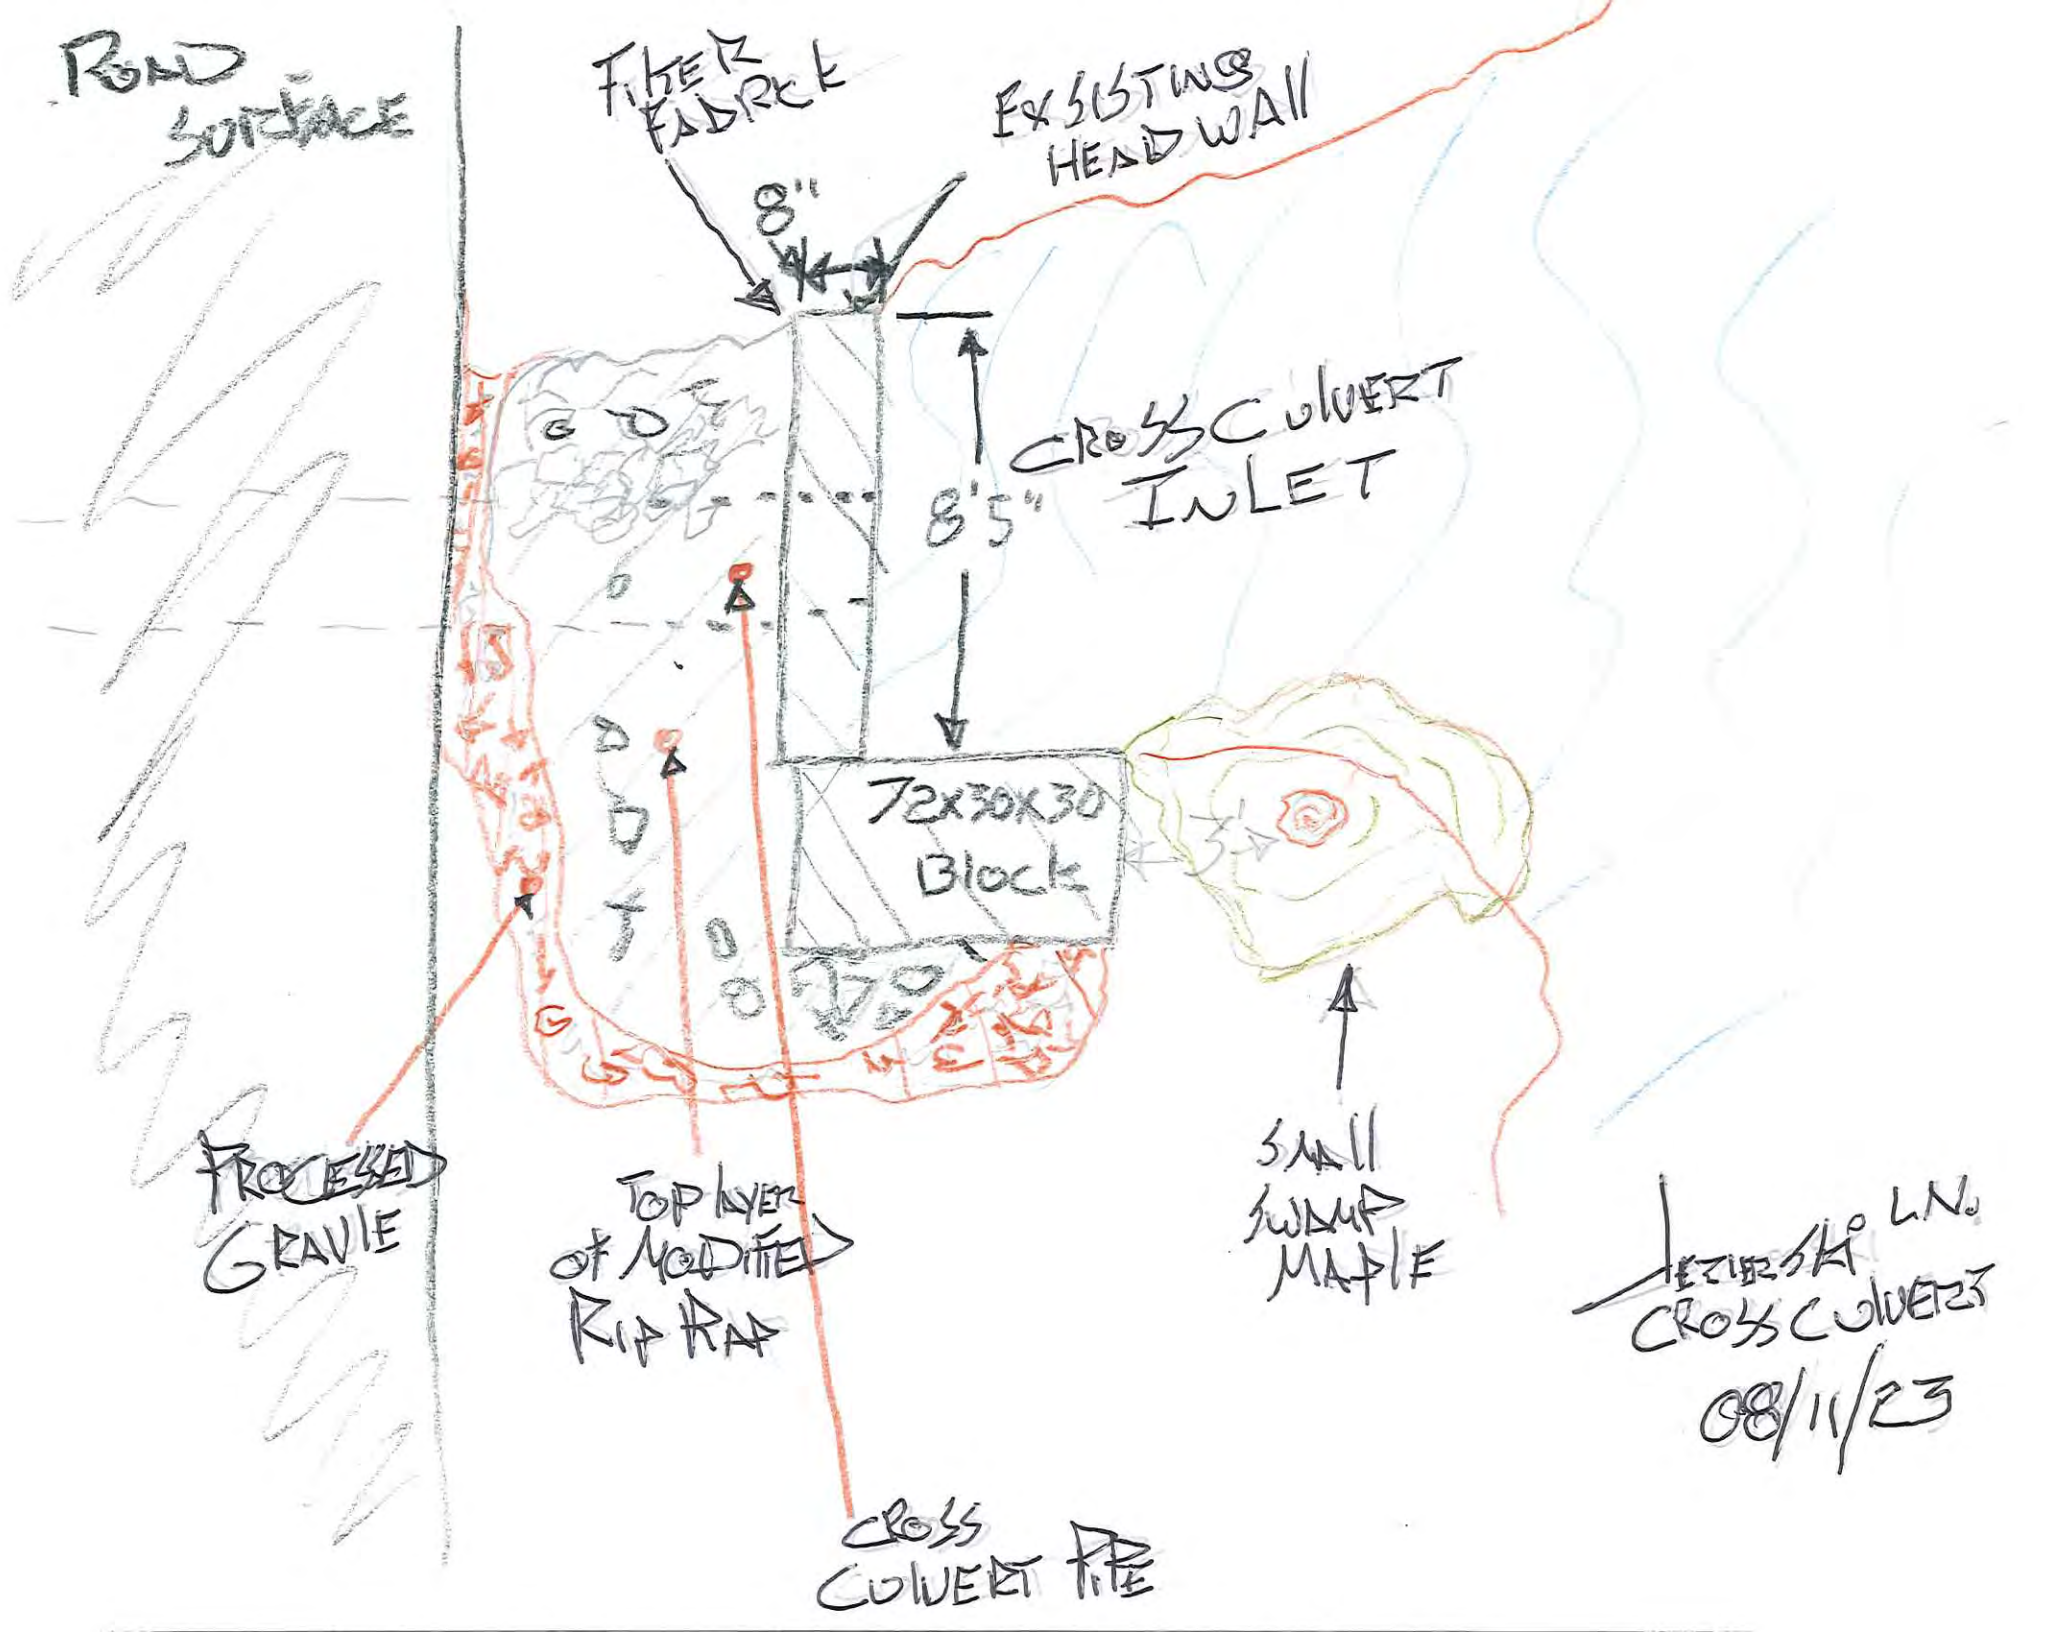 ROAD
SURFACE
FilTER
FADRCK
8"
EXSISTING
HEADWAll
CROSS CUlVERT
INLET
8'5"
72x30x30
Block
3'
PROCESSED
GRAVlE
TOP lAYER
of MODIFIED
RIP RAP
SMAll
SWAMP
MAPlE
JEZIERSKi LN.
CROSS CUlVERT
08/11/23
CROSS
CUlVERT PiPE